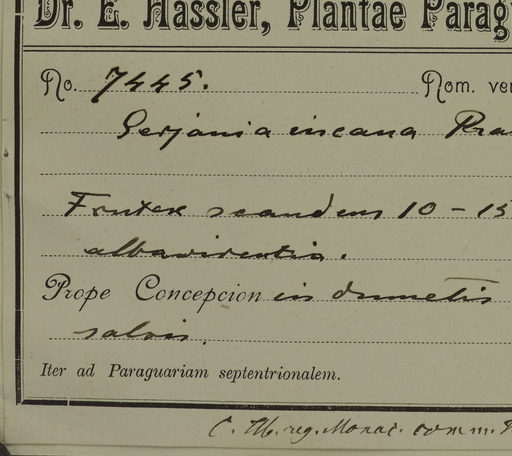 Dr. E. Hassler, Plantae Parag
No. 7445. Nom. ver
Serjania incana Ra
Frutex scandens 10-15
albavirentia.
Prope Concepcion in dumetis
salvis.
Iter ad Paraguariam septentrionalem.
C. M. reg. Monac. comm.